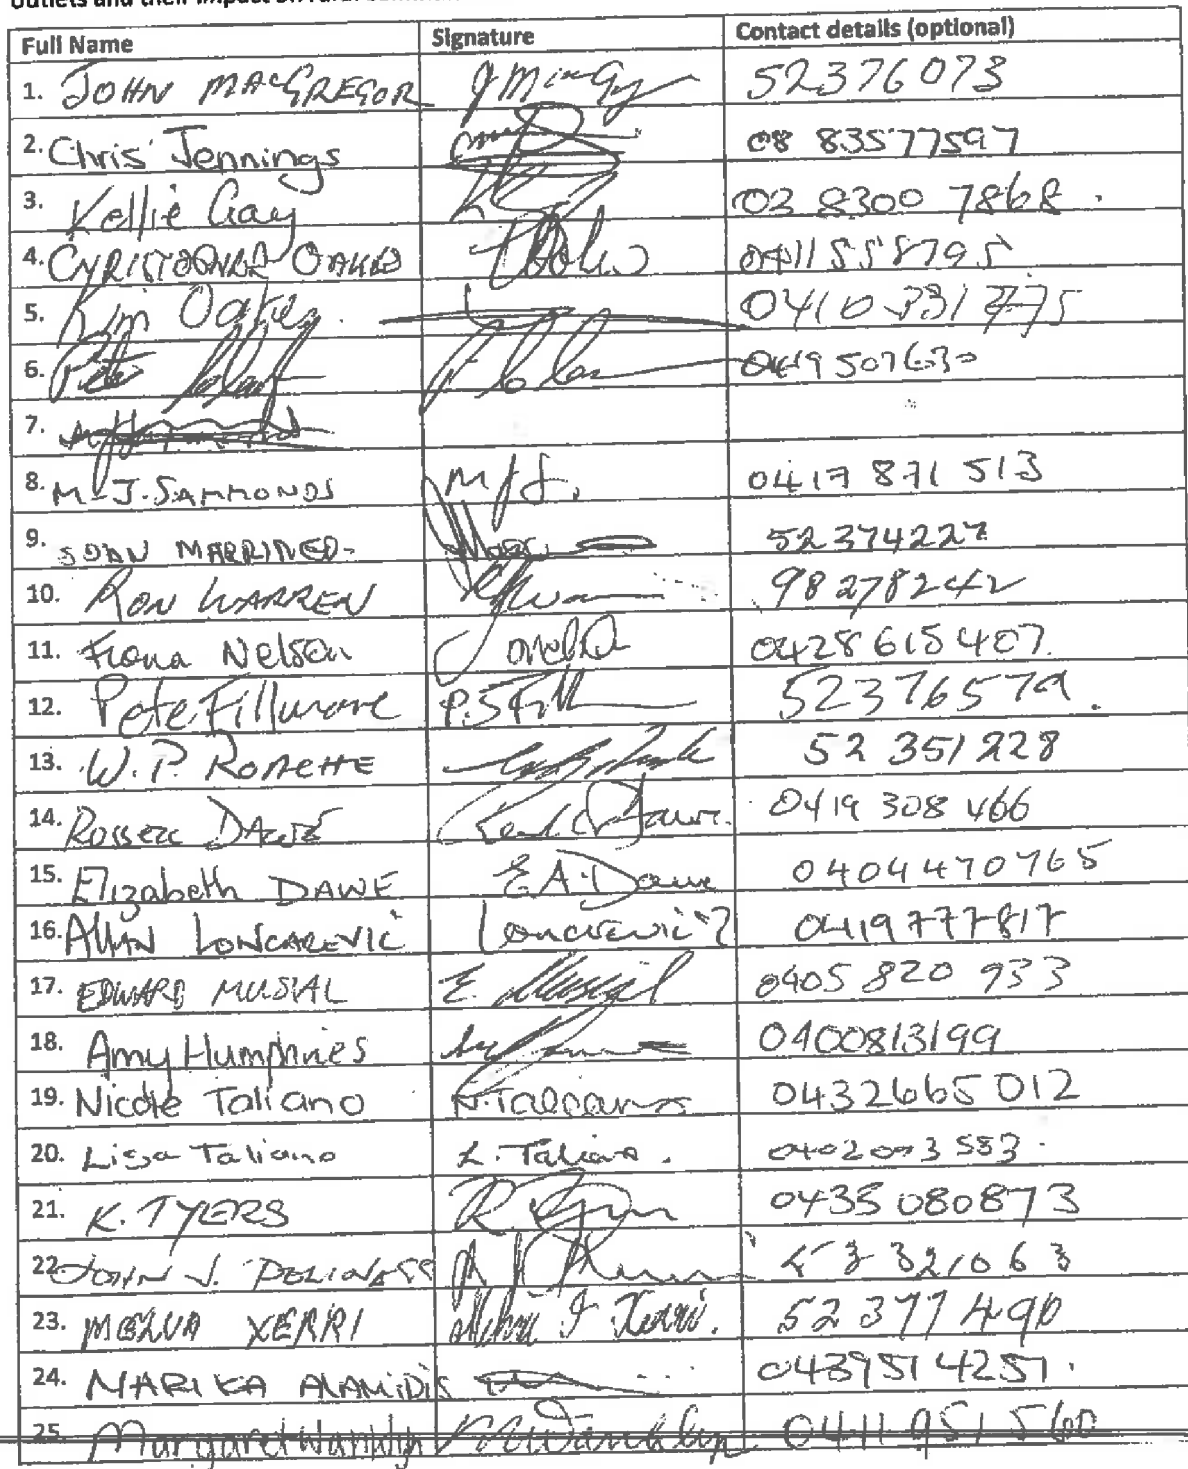 Outlets and their impact on rural
Full Name Signature Contact details (optional)
1. JOHN MACGREGOR 52376073
2. Chris Jennings 08 83577597
3. Kellie Gay 03 8300 7868.
4. 0411558795
5. Kim Oakes. 0410331775
6. Peter 0419507630
7.
8. M-J. SAMMONDS MJS. 0417 871 513
9. 52374227
10. RON WARREN 98278242
11. Fiona Nelson 0428615407.
12. Pete Fillmore P.S Fill 52376579.
13. W. P. 52 351228
14. Russell DAWE 0419 308 466
15. Elizabeth DAWE E A. Dawe 0404470765
16. ALLAN LONCAREVIC Loncarevic 0419777817
17. EDWARD MUSIAL E. Musial 0405 820 933
18. Amy Humphries 0400813199
19. Nicole Taliano N. Taliano 0432665 012
20. Lisa Taliano L. Taliano. 0402003 553.
21. K. TYERS 0435 080873
22. JOHN J.
23. MELVA XERRI Melva J Xerri. 52377490
24. MARIKA ALAMIDIS 0439514251.
25. Margaret 0411 951 560